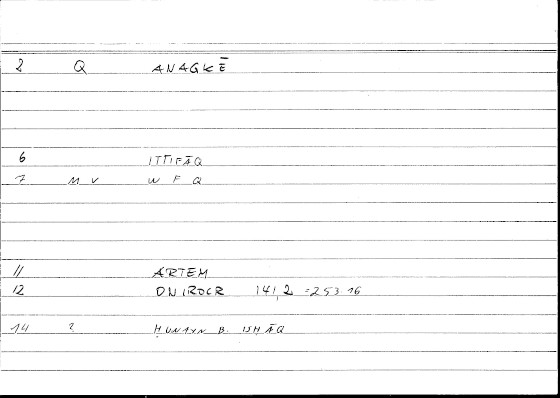 2 Q ANAGKĒ
6 ITTIFĀQ
7 M V W F Q
11 ARTEM
12 ONIROCR 141,2 =253 16
14 ? ḤUNAYN B. ISḤĀQ